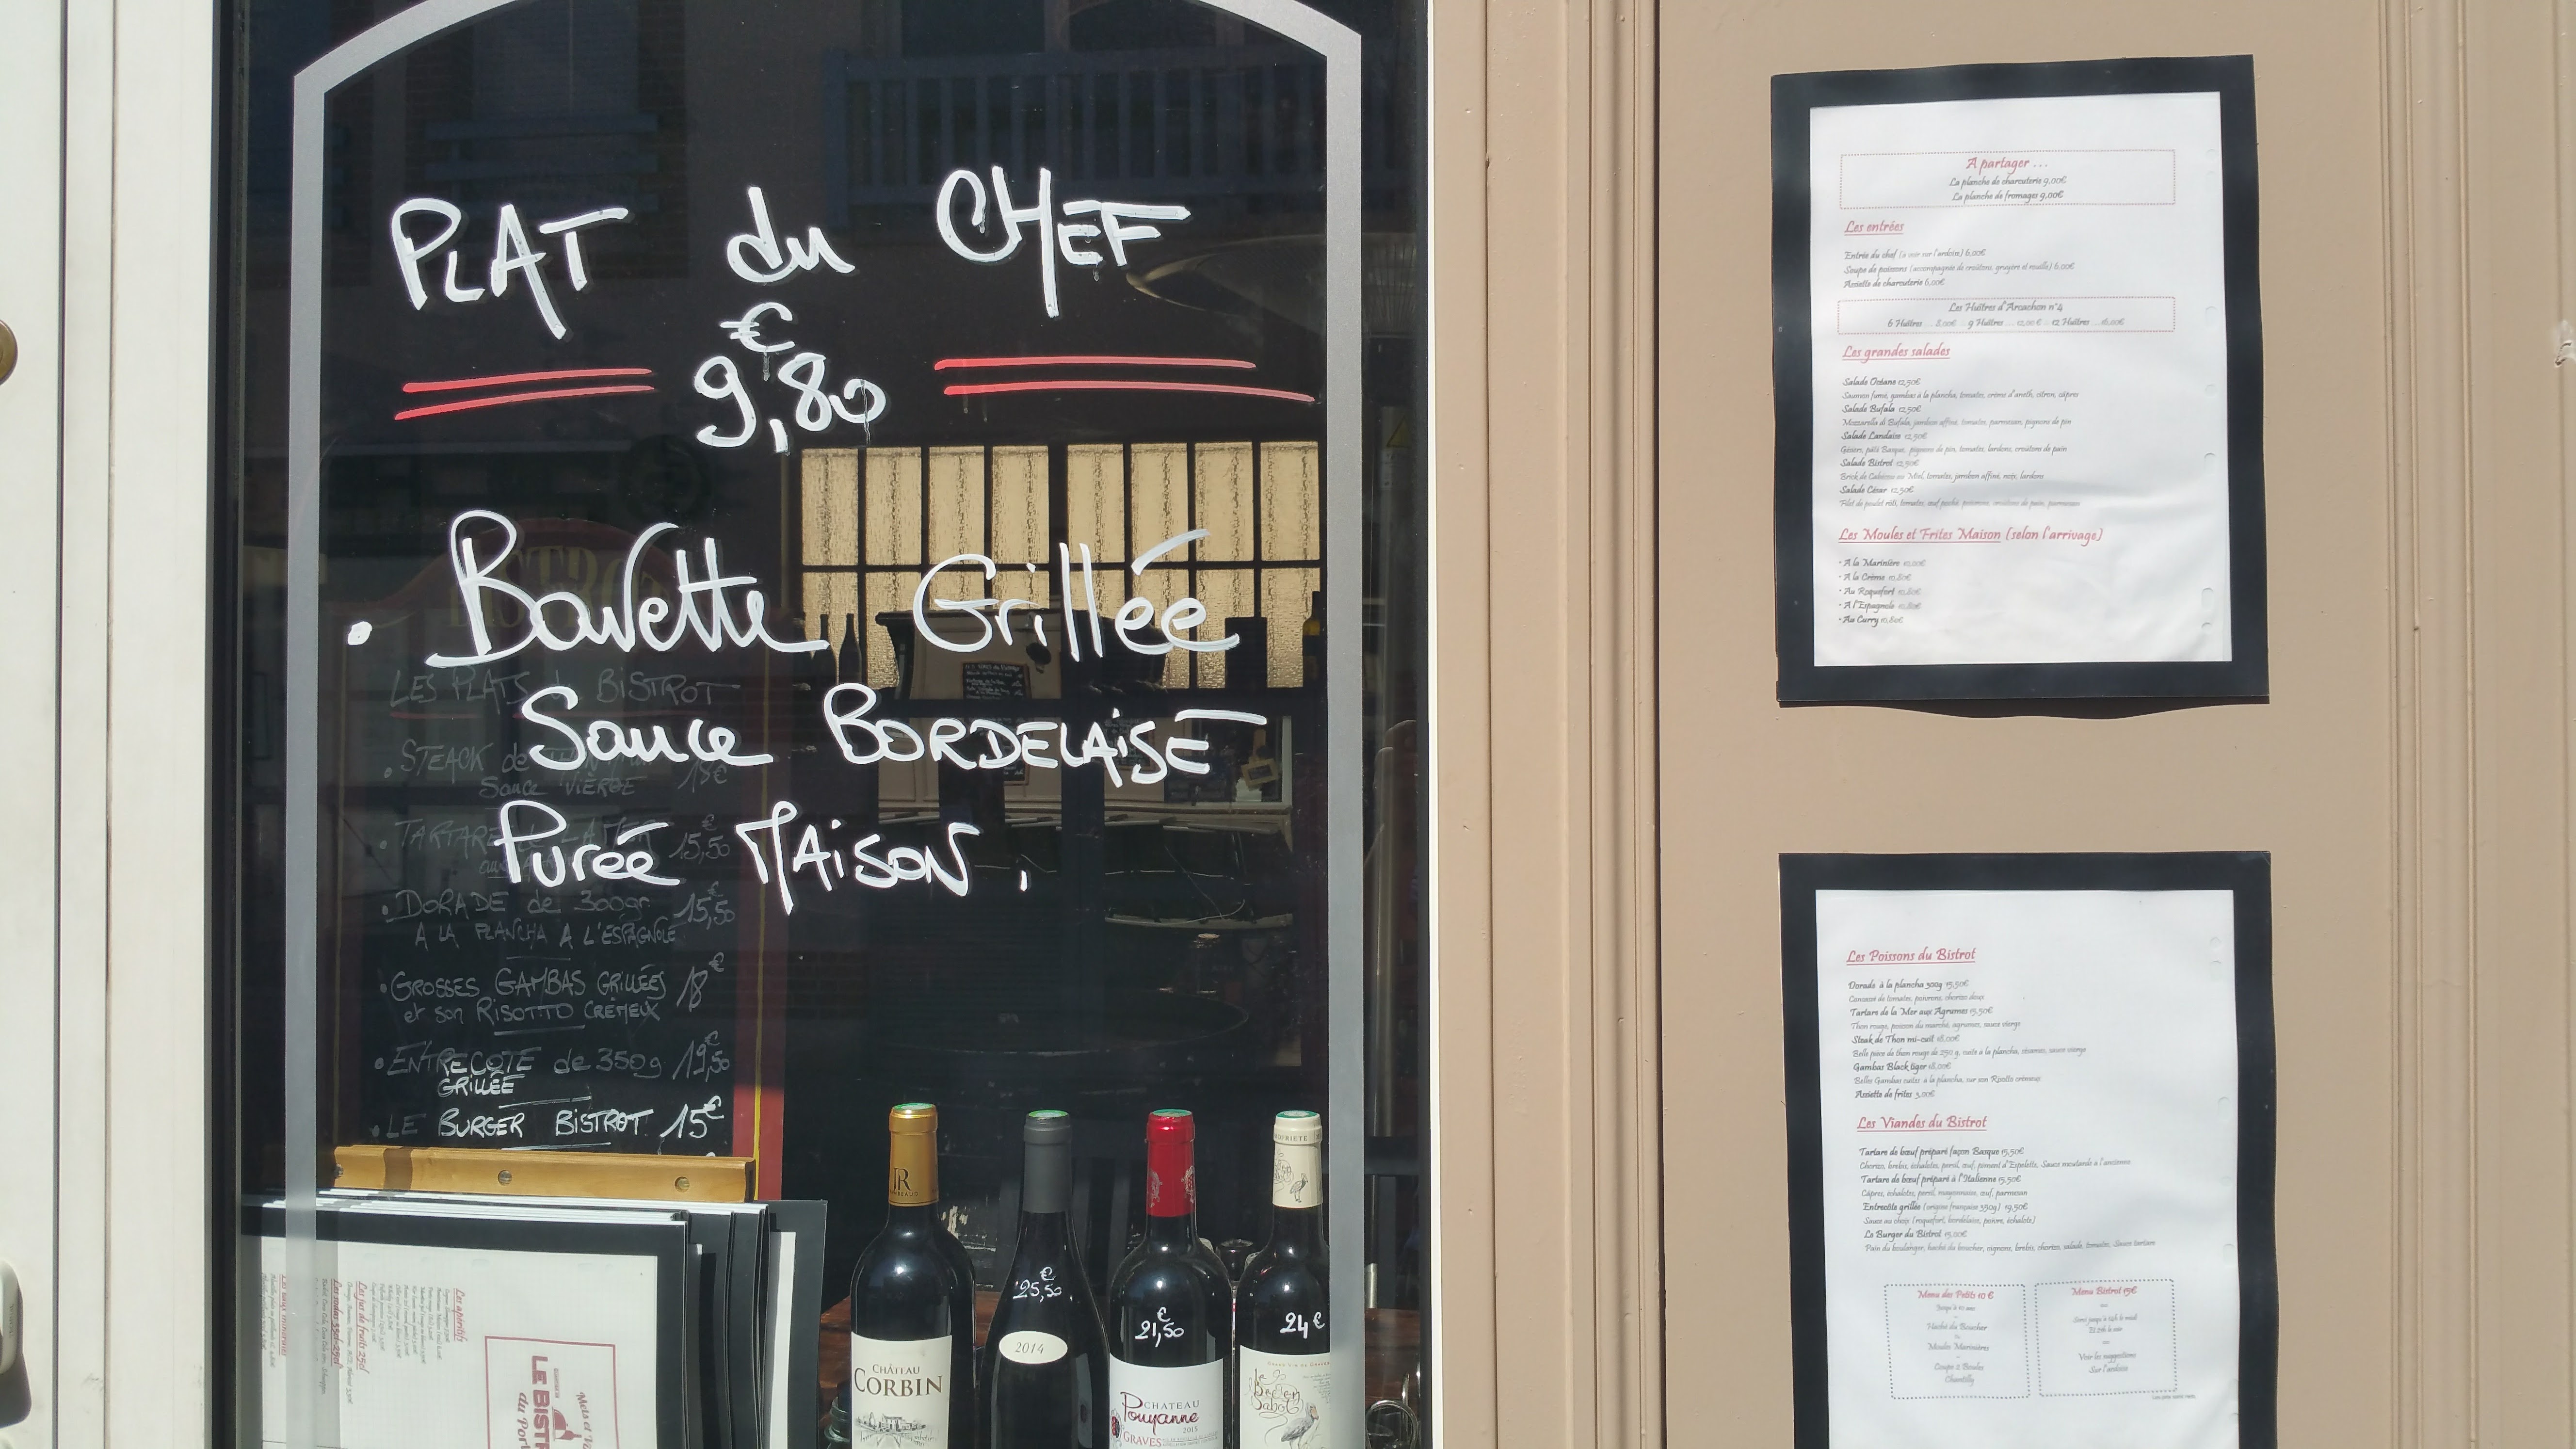 PLAT du CHEF
€
9,80
• Bavette Grillée
Sauce BORDELAISE
Purée MAISON.
BISTROT
LES PLATS BISTROT
• STEACK de
Sauce VIERGE 18€
• TARTARE LA MER 15,50€
• DORADE de 300gr 15,50€
A LA PLANCHA A L'ESPAGNOLE
• GROSSES GAMBAS GRILLÉES 18€
et son RISOTTO CRÉMEUX
• ENTRECOTE de 350g 19,50€
GRILLÉE
• LE BURGER BISTROT 15€
JR
25,50€
2014
21,50€
24€
CHÂTEAU
CORBIN
CHATEAU
Pouyanne
2015
GRAVES
Les apéritifs
Les jus de fruits 25cl
LE BIST
du Por
A partager ...
La planche de charcuterie 9,00€
La planche de fromages 9,00€
Les entrées
Entrée du chef (à voir sur l'ardoise) 6,00€
Soupe de poissons (accompagnée de croûtons, gruyère et rouille) 6,00€
Assiette de charcuterie 6,00€
Les Huîtres d'Arcachon n°4
6 Huîtres ... 8,00€ ... 9 Huîtres ... 12,00 € ... 12 Huîtres ... 16,00€
Les grandes salades
Salade Océane 12,50€
Saumon fumé, gambas à la plancha, tomates, crème d'aneth, citron, câpres
Salade Bufala 12,50€
Mozzarella di Bufala, jambon affiné, tomates, parmesan, pignons de pin
Salade Landaise 12,50€
Gésiers, pâté Basque, pignons de pin, tomates, lardons, croûtons de pain
Salade Bistrot 12,50€
Brick de Cabécou au Miel, tomates, jambon affiné, noix, lardons
Salade César 12,50€
Filet de poulet rôti, tomates, œuf poché, poivrons, croûtons de pain, parmesan
Les Moules et Frites Maison (selon l'arrivage)
• A la Marinière 10,00€
• A la Crème 10,80€
• Au Roquefort 10,80€
• A l'Espagnole 10,80€
• Au Curry 10,80€
Les Poissons du Bistrot
Dorade à la plancha 300g 15,50€
Concassé de tomates, poivrons, chorizo doux
Tartare de la Mer aux Agrumes 15,50€
Thon rouge, poisson du marché, agrumes, sauce vierge
Steak de Thon mi-cuit 18,00€
Belle pièce de thon rouge de 250 g, cuite à la plancha, sésames, sauce vierge
Gambas Black tiger 18,00€
Belles Gambas cuites à la plancha, sur son Risotto crémeux
Assiette de frites 3,00€
Les Viandes du Bistrot
Tartare de bœuf préparé façon Basque 15,50€
Chorizo, brebis, échalotes, persil, œuf, piment d'Espelette, Sauce moutarde à l'ancienne
Tartare de bœuf préparé à l'Italienne 15,50€
Câpres, échalotes, persil, mayonnaise, œuf, parmesan
Entrecôte grillée (origine française 350g) 19,50€
Sauce au choix (roquefort, bordelaise, poivre, échalote)
Le Burger du Bistrot 15,00€
Pain du boulanger, haché du boucher, oignons, brebis, chorizo, salade, tomates, Sauce tartare
Menu des Petits 10 €
Jusqu'à 10 ans
Haché du Boucher
Moules Marinières
Coupe 2 Boules
Chantilly
Menu Bistrot 15€
Voir les suggestions
Sur l'ardoise